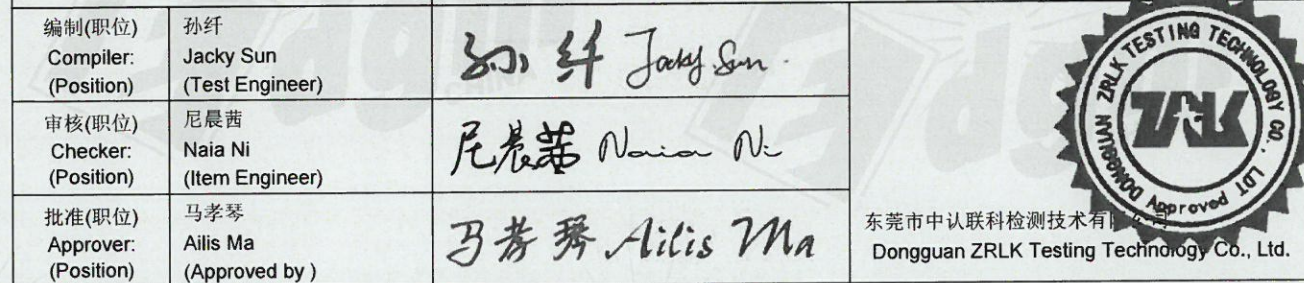 编制(职位)
Compiler:
(Position)
孙纤
Jacky Sun
(Test Engineer)
孙纤 Jacky Sun.
审核(职位)
Checker:
(Position)
尼晨茜
Naia Ni
(Item Engineer)
尼晨茜 Naia Ni
批准(职位)
Approver:
(Position)
马孝琴
Ailis Ma
(Approved by )
马孝琴 Ailis Ma
DONGGUAN ZRLK TESTING TECHNOLOGY CO., LDT
ZRLK
Approved
东莞市中认联科检测技术有
Dongguan ZRLK Testing Technology Co., Ltd.
CHINA